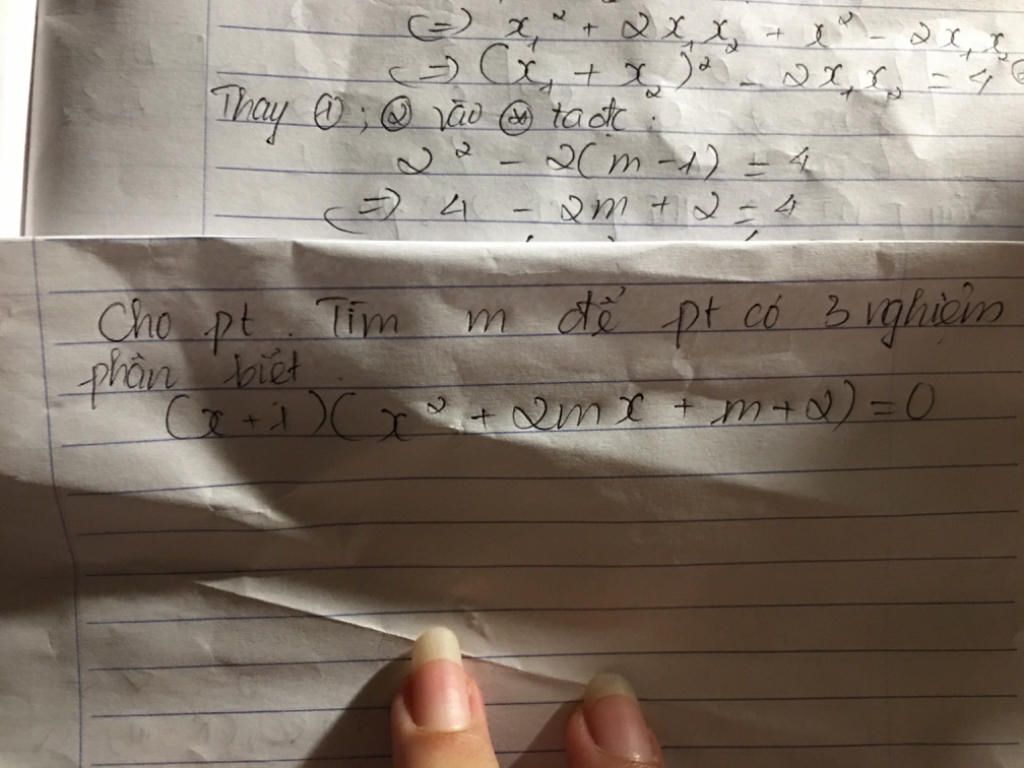 (=) x₁² + 2x₁x₂ + x² - 2x₁x₂
(=) (x₁ + x₂)² - 2x₁x₂ = 4
Thay ①; ② vào ⊛ ta đc :
2² - 2(m - 1) = 4
(=) 4 - 2m + 2 = 4
Cho pt. Tìm m để pt có 3 nghiệm
phân biệt.
(x + 1)(x² + 2mx + m + 2) = 0